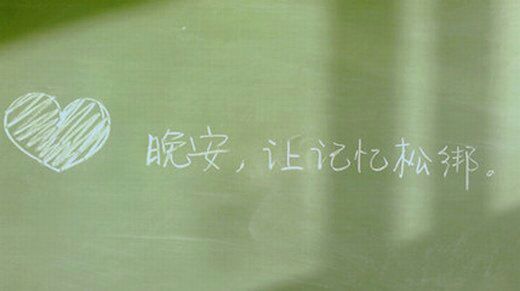 晚安,让记忆松绑。